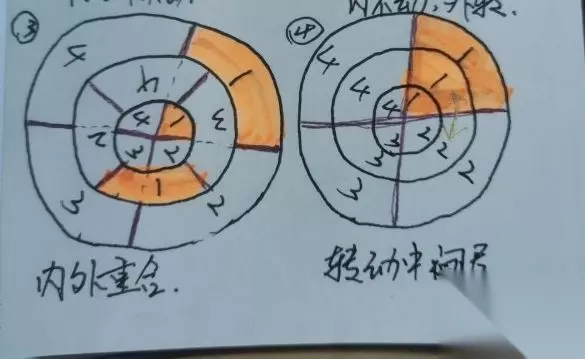 ③
④
4
1
3
2
3
4
3
1
2
4
1
2
3
4
1
2
3
4
1
2
3
4
1
2
3
内外重合.
转动中间